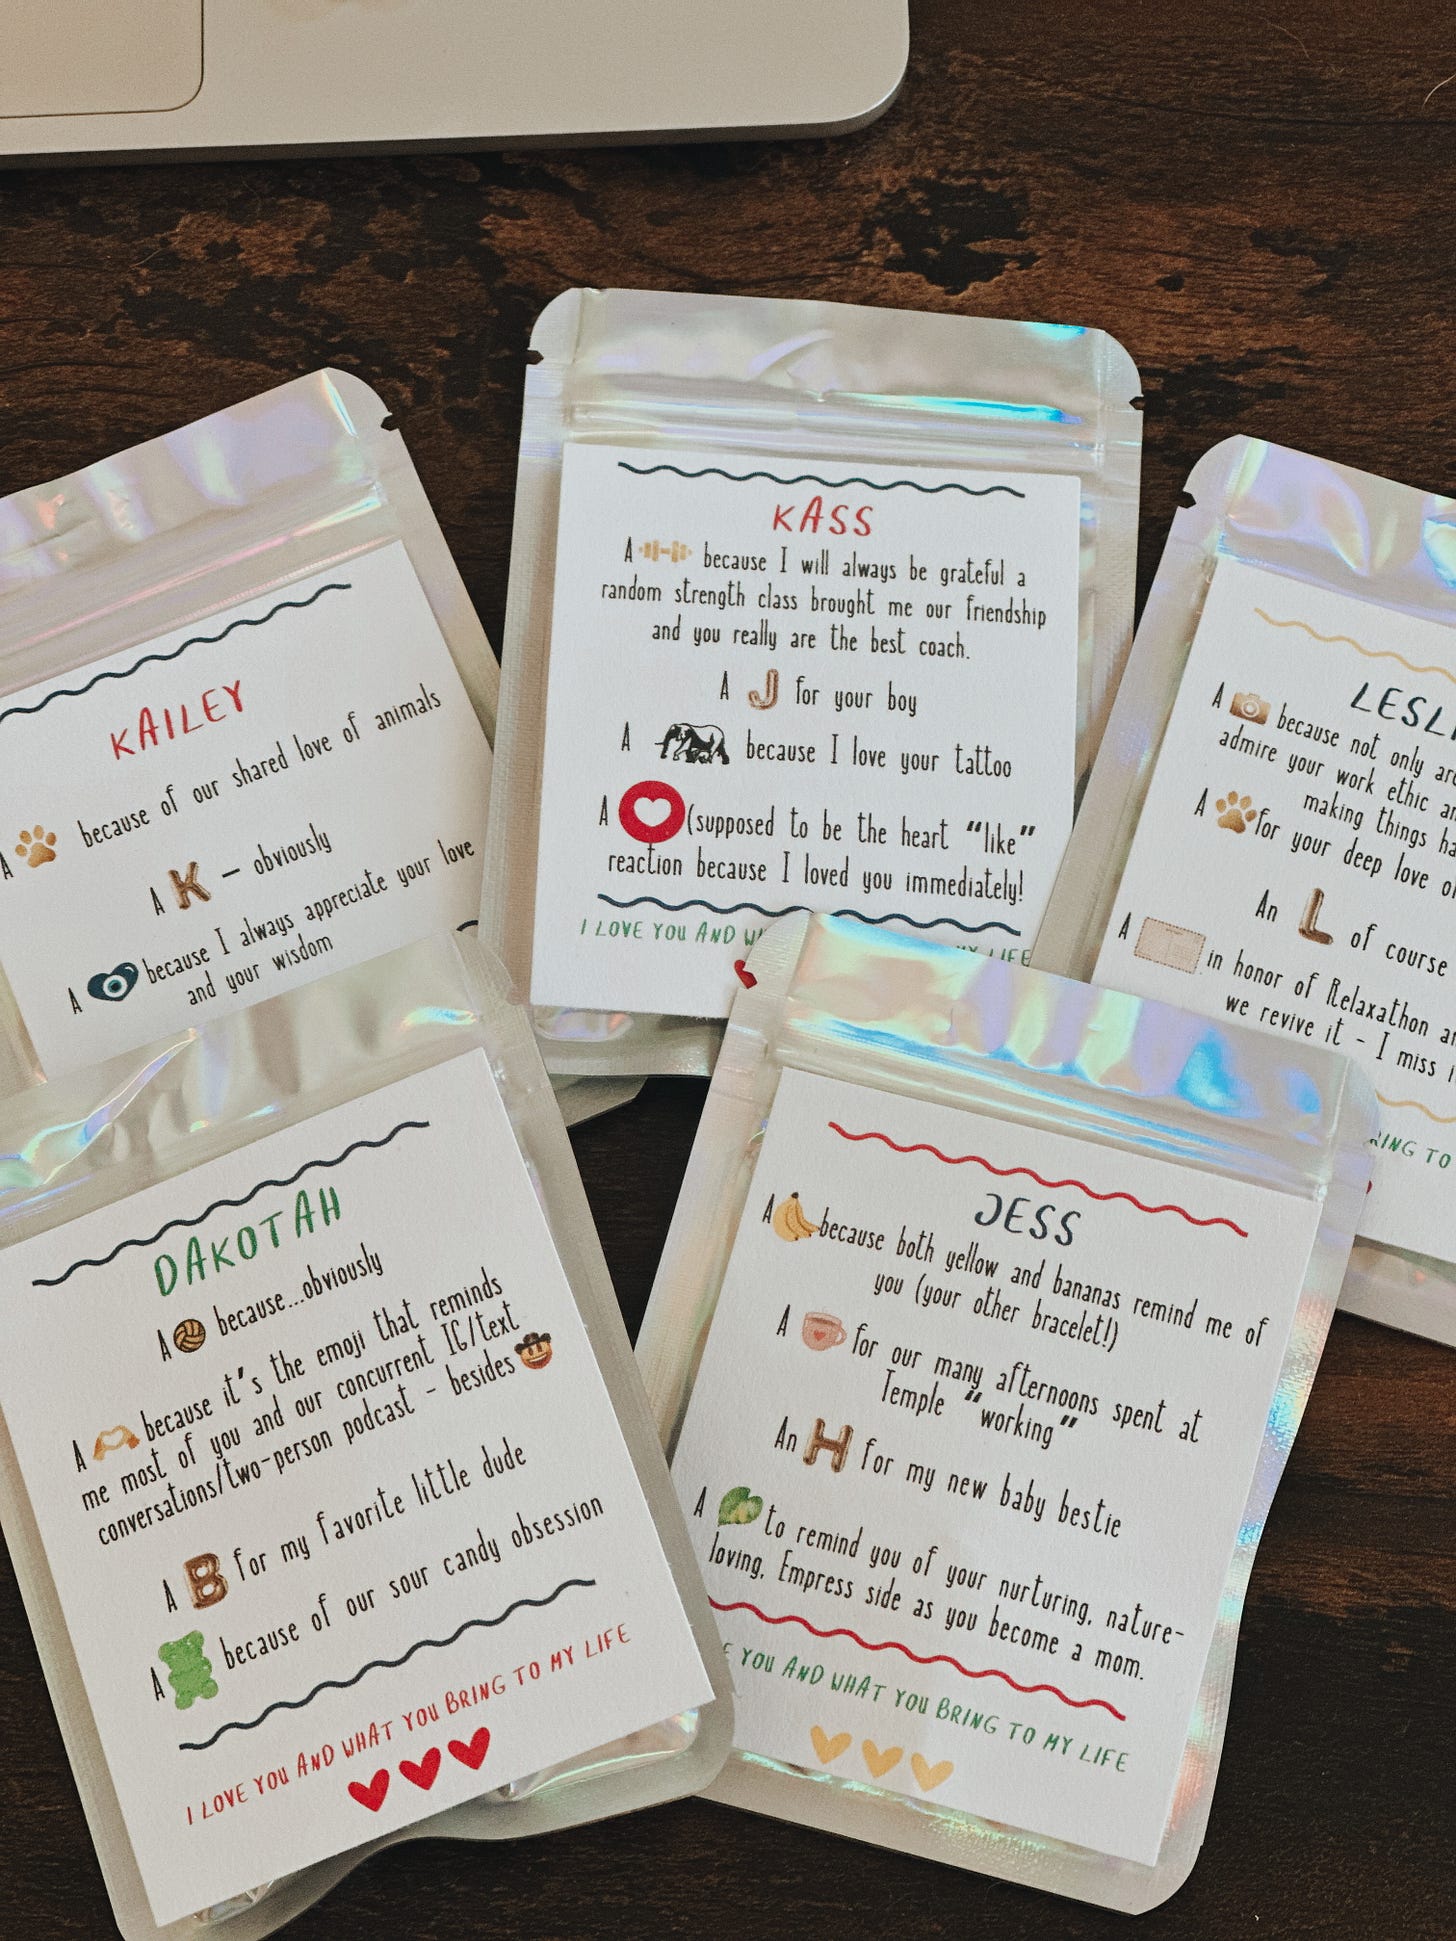 KAILEY
A because of our shared love of animals
A K – obviously
A because I always appreciate your love
and your wisdom
KASS
A because I will always be grateful a
random strength class brought me our friendship
and you really are the best coach.
A J for your boy
A because I love your tattoo
A (supposed to be the heart “like”
reaction because I loved you immediately!
I LOVE YOU AND
MY LIFE
A because not only
admire your work ethic
making things
A for your deep love
An L of course
A in honor of Relaxathon
we revive it - I miss
BRING TO
DAKOTAH
A because...obviously
A because it's the emoji that reminds
me most of you and our concurrent IG/text
conversations/two-person podcast - besides
A B for my favorite little dude
A because of our sour candy obsession
I LOVE YOU AND WHAT YOU BRING TO MY LIFE
JESS
A because both yellow and bananas remind me of
you (your other bracelet!)
A for our many afternoons spent at
Temple “working”
An H for my new baby bestie
A to remind you of your nurturing, nature-
loving, Empress side as you become a mom.
YOU AND WHAT YOU BRING TO MY LIFE